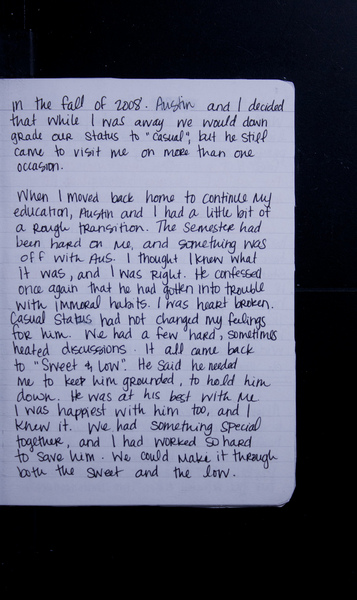 in the fall of 2008. Austin and I decided
that while I was away we would down
grade our status to "casual", but he still
came to visit me on more than one
occasion.
When I moved back home to continue my
education, Austin and I had a little bit of
a rough transition. The semester had
been hard on me, and something was
off with Aus. I thought I knew what
it was, and I was right. He confessed
once again that he had gotten into trouble
with immoral habits. I was heart broken.
Casual status had not changed my feelings
for him. We had a few hard, sometimes
heated discussions. It all came back
to "Sweet & Low". He said he needed
me to keep him grounded, to hold him
down. He was at his best with me
I was happiest with him too, and I
knew it. We had something special
together, and I had worked so hard
to save him. We could make it through
both the sweet and the low.